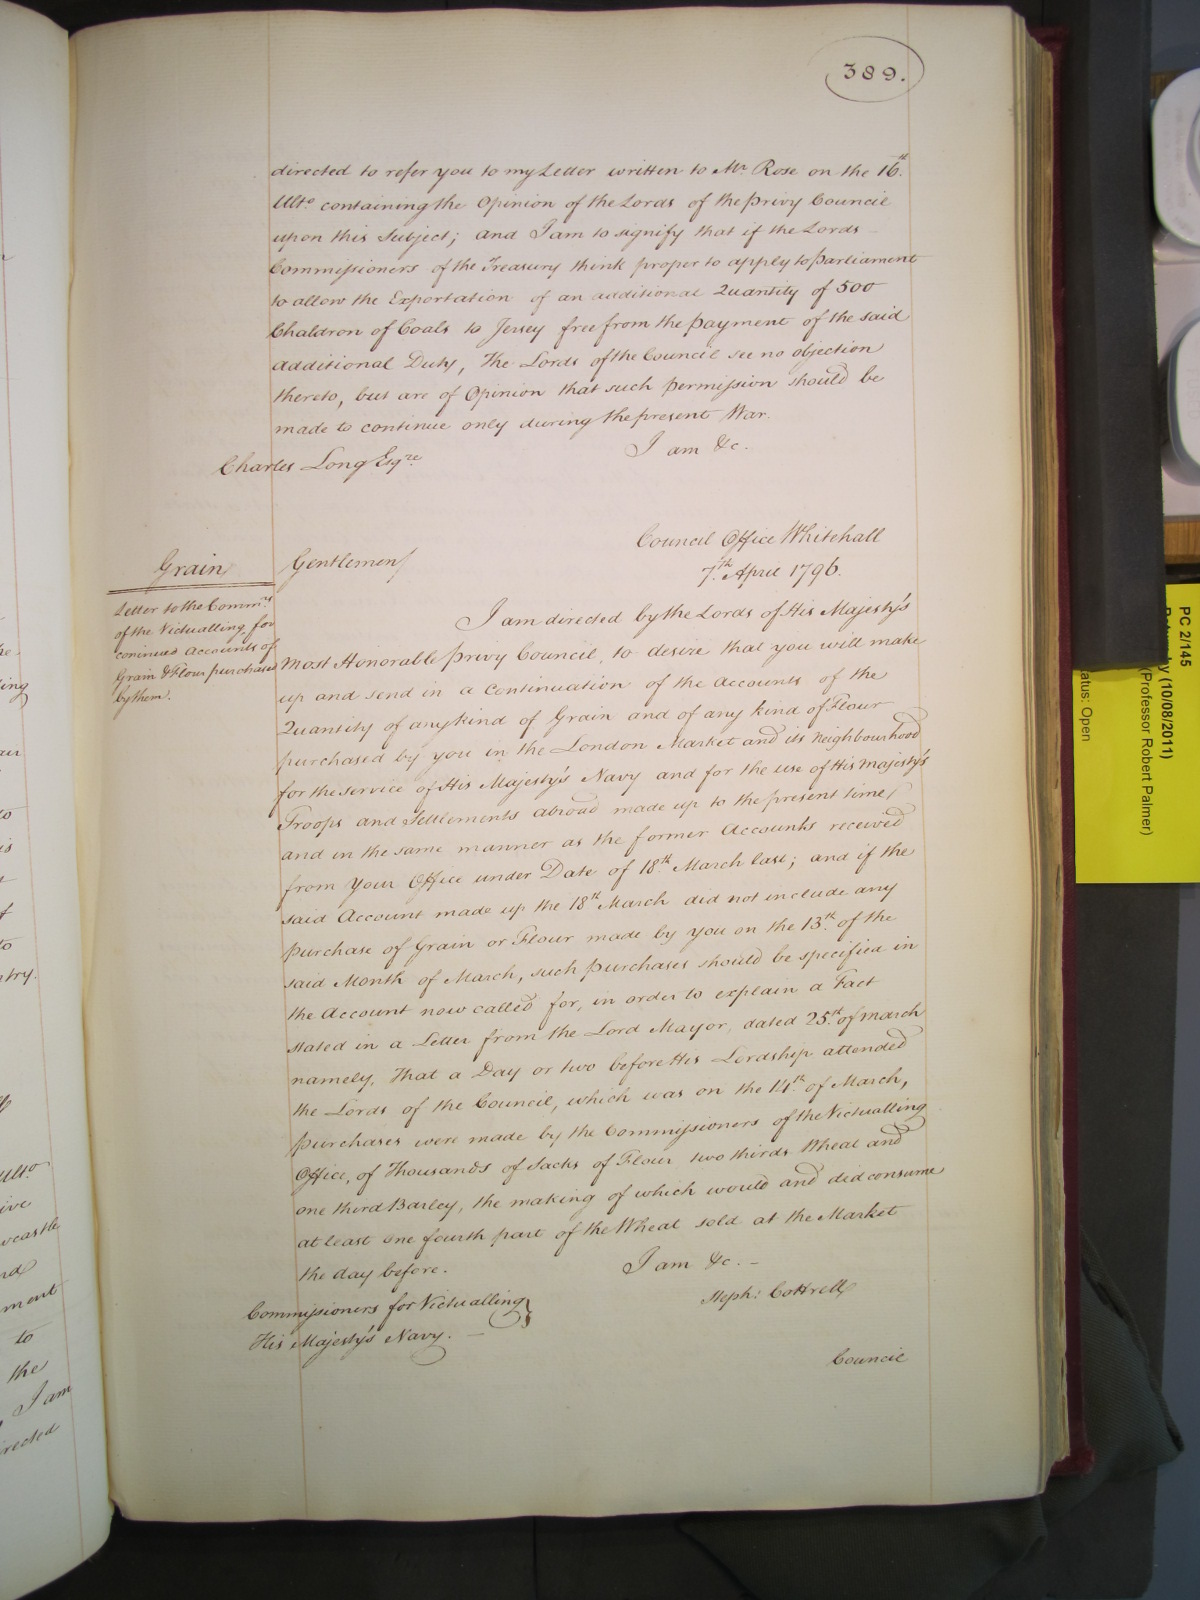 389.
directed to refer you to my Letter written to Mr. Rose on the 16th.
Ulto. containing the Opinion of the Lords of the Privy Council
upon this Subject; and I am to signify that if the Lords
Commissioners of the Treasury think proper to apply to Parliament
to allow the Exportation of an additional Quantity of 500
Chaldron of Coals to Jersey free from the payment of the said
additional Duty, The Lords of the Council see no objection
thereto, but are of Opinion that such permission should be
made to continue only during the present War.
I am &c.
Charles Long Esqre.
Council Office Whitehall
7th. April 1796.
Grain
Letter to the Commrs.
of the Victualling for
continued Accounts of
Grain & Flour purchased
by them.
Gentlemen/
I am directed by the Lords of His Majesty's
most Honorable Privy Council, to desire that you will make
up and send in a Continuation of the Accounts of the
Quantity of any kind of Grain and of any kind of Flour
purchased by you in the London Market and its Neighbourhood
for the service of His Majesty's Navy and for the use of His Majesty's
Troops and Settlements abroad made up to the present time/
and in the same manner as the former Accounts received
from your Office under Date of 18th. March last; and if the
said Account made up the 18th. March did not include any
purchase of Grain or Flour made by you on the 13th. of the
said Month of March, such purchases should be specified in
the Account now called for, in order to explain a Fact
stated in a Letter from the Lord Mayor, dated 25th. of March
namely, That a Day or two before His Lordship attended
the Lords of the Council, which was on the 14th. of March,
purchases were made by the Commissioners of the Victualling
Office, of Thousands of Sacks of Flour two thirds Wheat and
one third Barley, the making of which would and did consume
at least one fourth part of the Wheat sold at the Market
the day before.
I am &c. -
Steph: Cottrell
Commissioners for Victualling
His Majesty's Navy. -
Council
PC 2/145
(10/08/2011)
(Professor Robert Palmer)
Status: Open